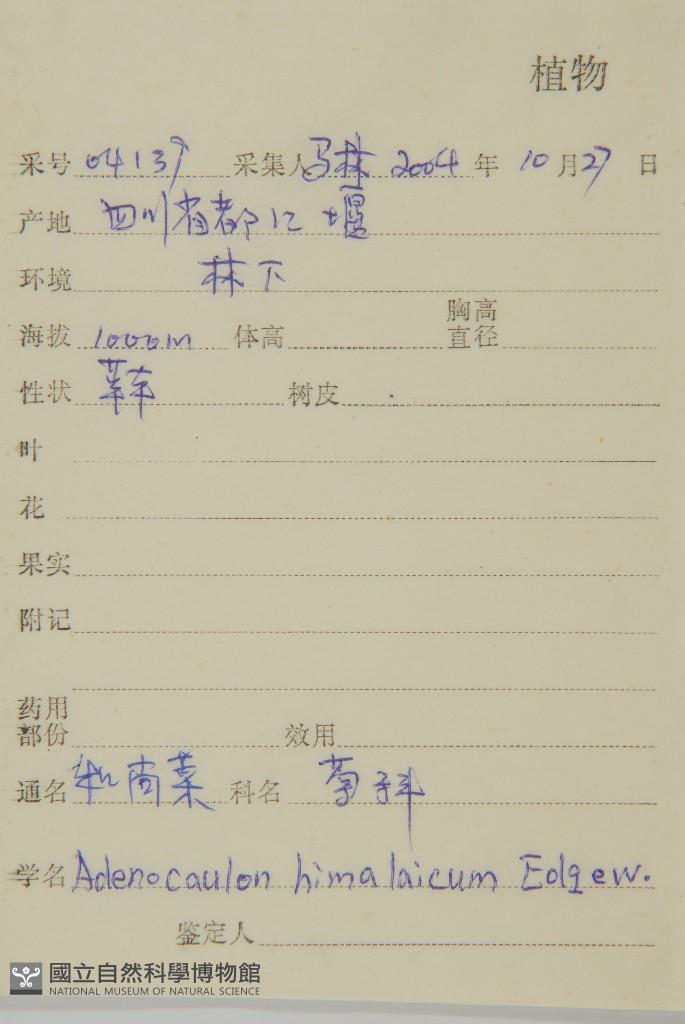 植物
采号 04137 采集人 马林 2004 年 10 月 27 日
产地 四川省都江堰
环境 林下
海拔 1000m 体高 胸高直径
性状 草本 树皮
叶
花
果实
附记
药用部份 效用
通名 和尚菜 科名 菊科
学名 Adenocaulon himalaicum Edgew.
鉴定人
國立自然科學博物館
NATIONAL MUSEUM OF NATURAL SCIENCE